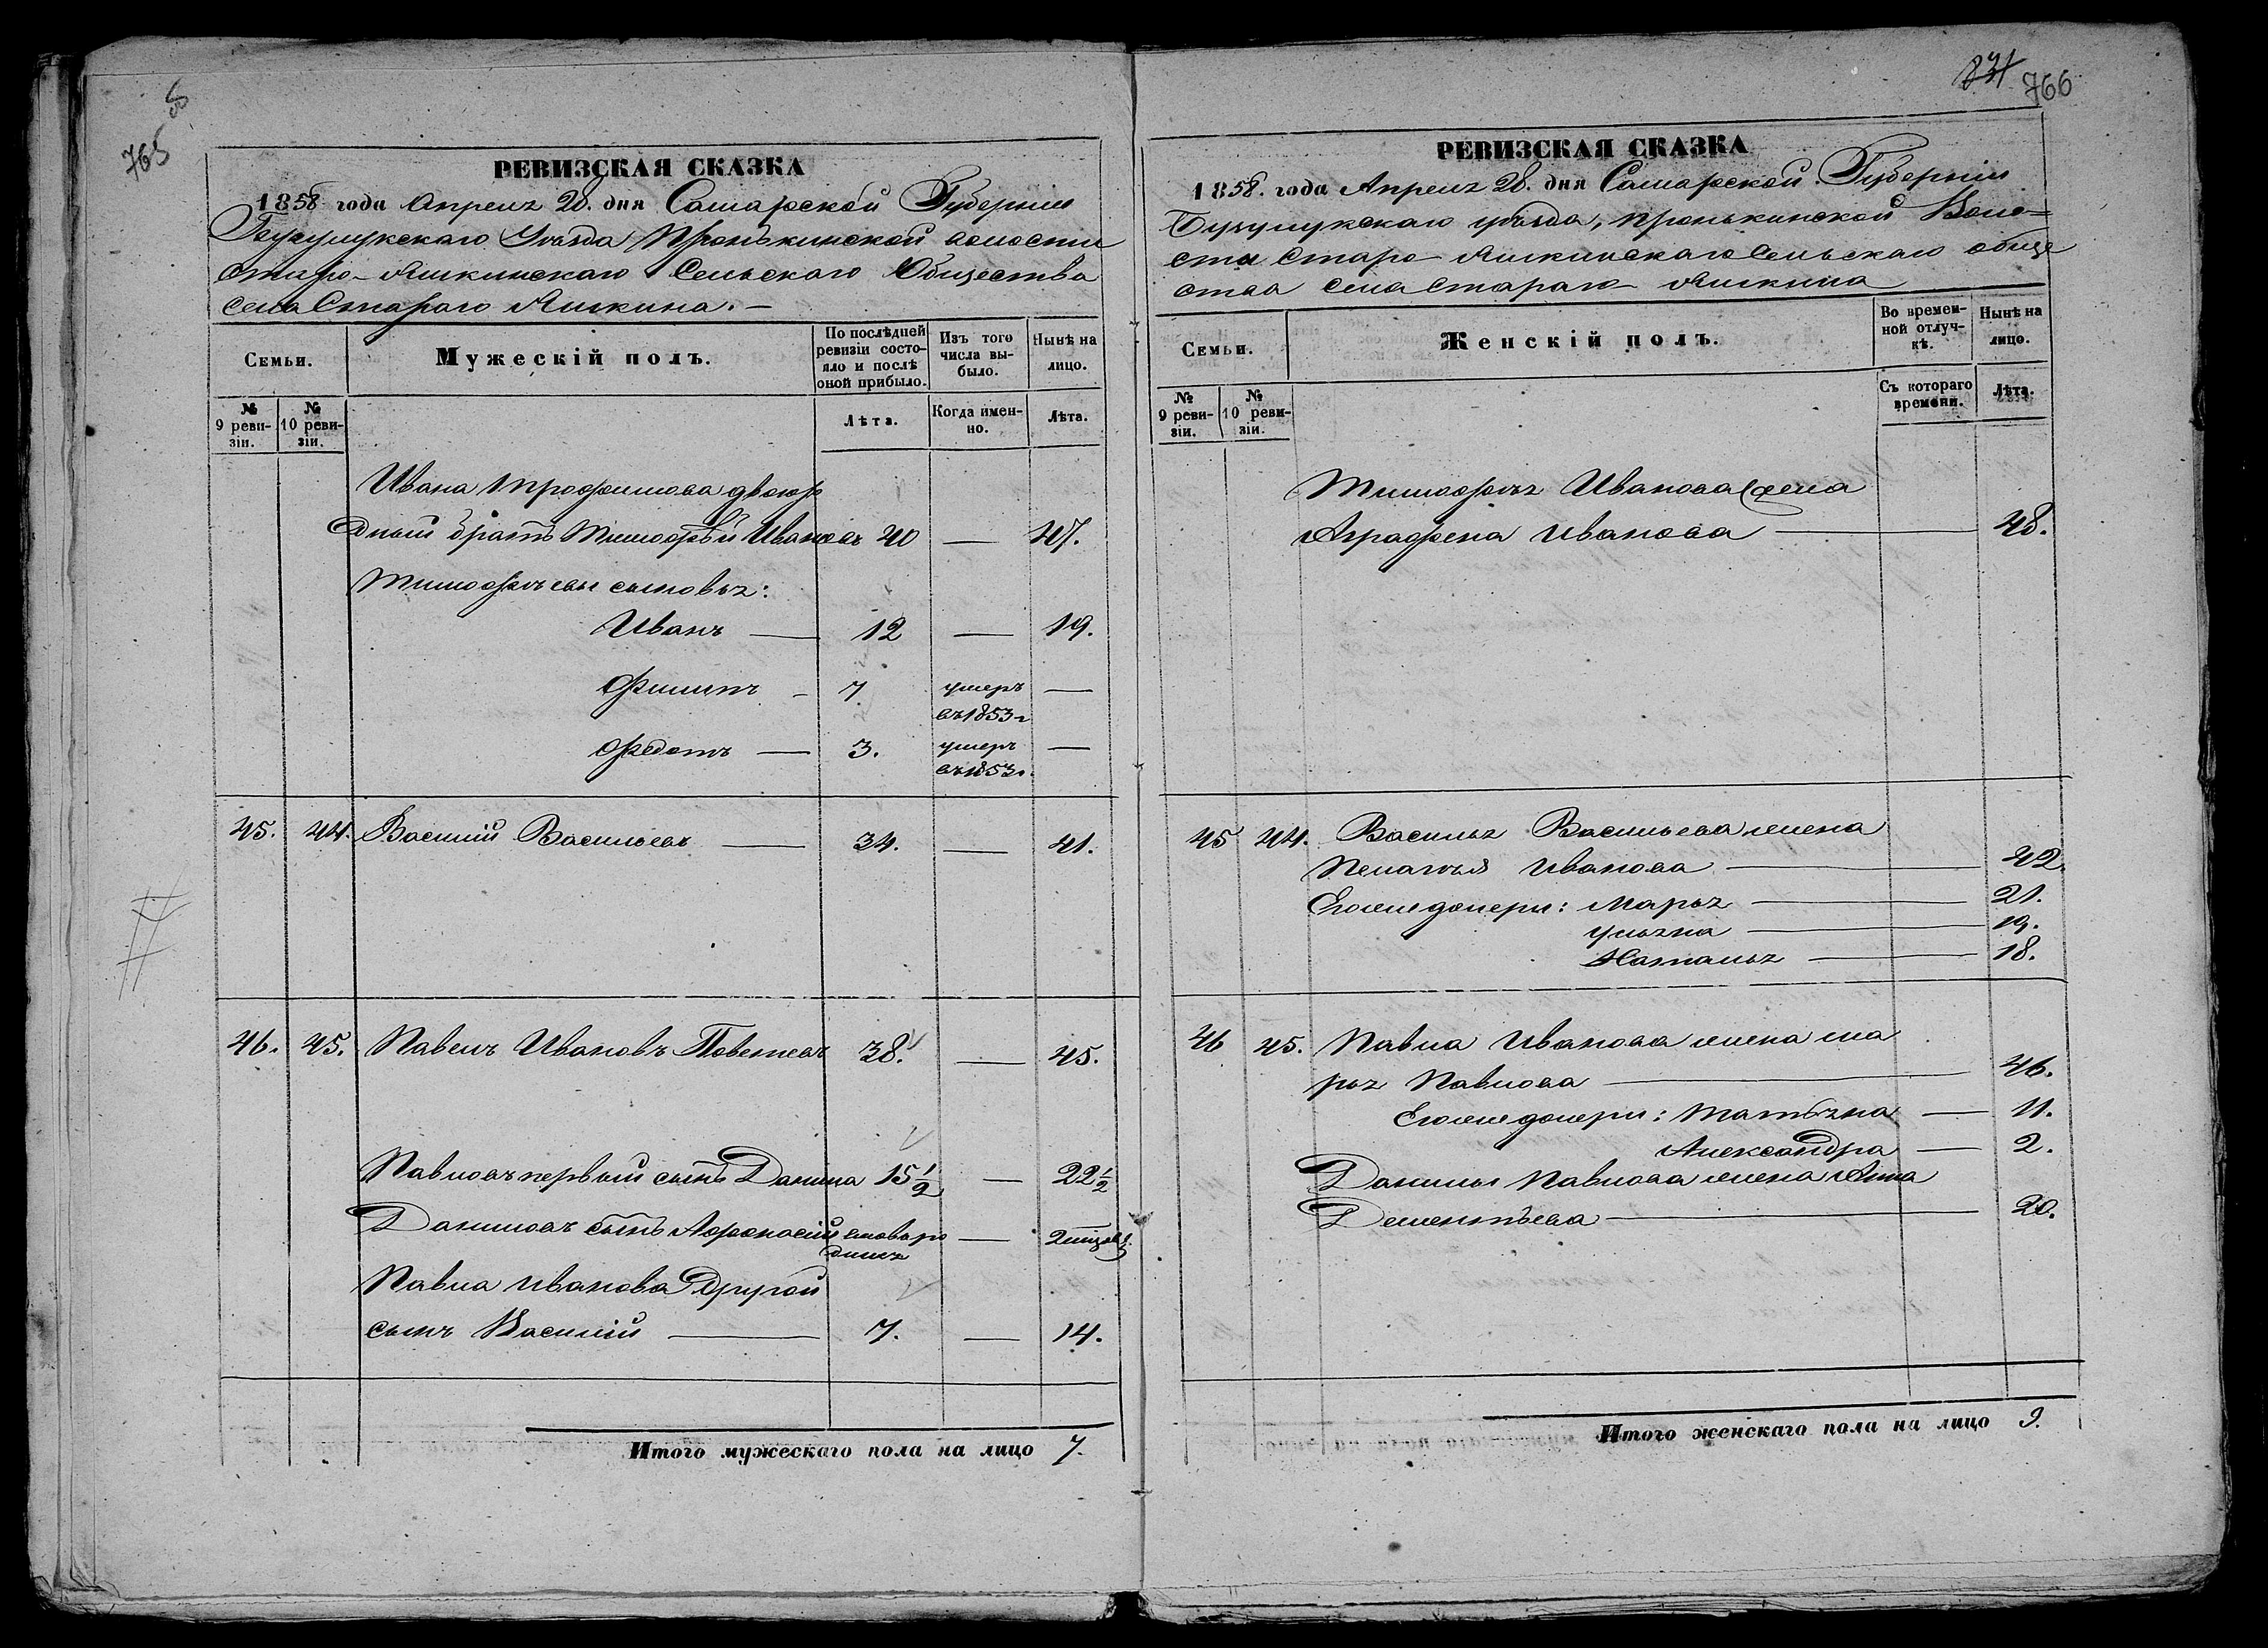 765 об
РЕВИЗСКАЯ СКАЗКА
1858 года Апреля 28. дня Самарской Губерніи
Бузулукскаго Уѣзда Пронькинской волости
Старо-Яшкинскаго Сельскаго Общества
села Стараго Яшкина. –
Семьи.
Мужескій полъ.
По послѣдней ревизіи состояло и послѣ оной прибыло.
Изъ того числа выбыло.
Нынѣ на лицо.
№ 9 ревизіи.
№ 10 ревизіи.
Лѣта.
Когда именно.
Лѣта.
Ивана Трофимова двоюро
дный братъ Тимофѣй Ивановъ 40 — 47.
Тимофѣевы сыновья:
Иванъ — 12 — 19.
Филипъ – 7 умеръ —
въ 1853 г
Федотъ — 3. умеръ —
въ 1853 г.
45. 44. Василій Васильевъ — 34. — 41.
46. 45. Павелъ Ивановъ 38. — 45.
Павловъ первый сынъ Данила 15 1/2 — 22 1/2
Даниловъ сынъ Афонасій вновь ро —
дился
Павла Иванова Другой
сынъ Василій — 7. — 14.
Итого мужескаго пола на лицо 7.
831 766
РЕВИЗСКАЯ СКАЗКА
1858. года Апреля 28. дня Самарской Губерніи
Бузулукскаго уѣзда, Пронькинской Воло=
сти Старо-Яшкинскаго Сельскаго обще
ства села Стараго Яшкина
Семьи.
Женскій полъ.
Во временной отлучкѣ.
Нынѣ на лицо.
№ 9 ревизіи.
№ 10 ревизіи.
Съ котораго времени.
Лѣта.
Тимофѣя Иванова жена
Аграфена Иванова — 48.
45 44. Василья Васильева жена
Пелагѣя Иванова — 42.
Его же дочери: Марья — 21.
Ульяна — 19.
Наталья — 18.
46 45. Павла Иванова жена Ма
рья Павлова — 46.
Его же дочери: Татьяна — 11.
Александра — 2.
Данилы Павлова жена Анна
Дементьева — 20.
Итого женскаго пола на лицо 9.